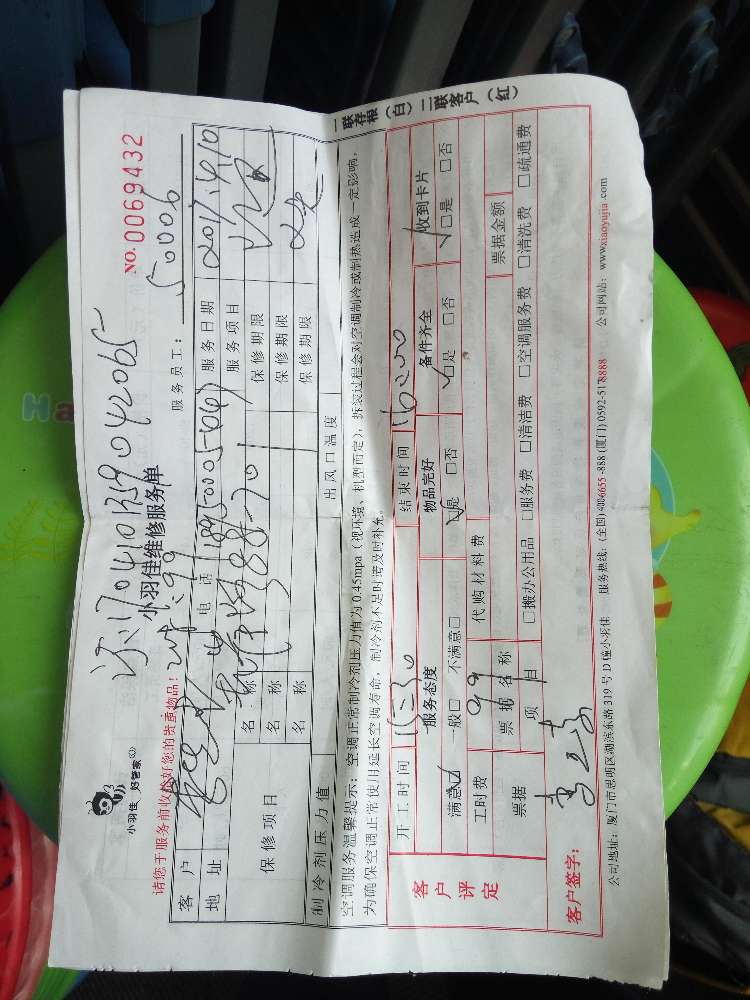 NO. 0069432
小羽佳 好管家
小羽佳维修服务单
请您于服务前收拾好您的贵重物品!
服务员工: 50006
客户 电话 服务日期 2017.4.10
地址 服务项目
保修项目 名称 保修期限
名称 保修期限
名称 保修期限
制冷剂压力值 出风口温度
空调服务温馨提示:空调正常制冷剂压力值为0.45mpa(视环境、机型而定),拆装过程会对空调制冷或制热造成一定影响,
为确保空调正常使用延长空调寿命,制冷剂不足时请及时补充。
一联存根(白)二联客户(红)
客户评定
开工时间 15:30 结束时间 16:00
服务态度 物品完好 备件齐全 收到卡片
满意□ 一般□ 不满意□ □是 □否 □是 □否 □是 □否
工时费 99 代购材料费
票据 票据名称 票据金额
项目 □搬办公用品 □服务费 □清洁费 □空调服务费 □清洗费 □疏通费
客户签字:
公司地址:厦门市思明区湖滨东路319号D幢小羽佳 服务热线:(全国)4006655-888(厦门)0592-5178888 公司网站:www.xiaoyujia.com